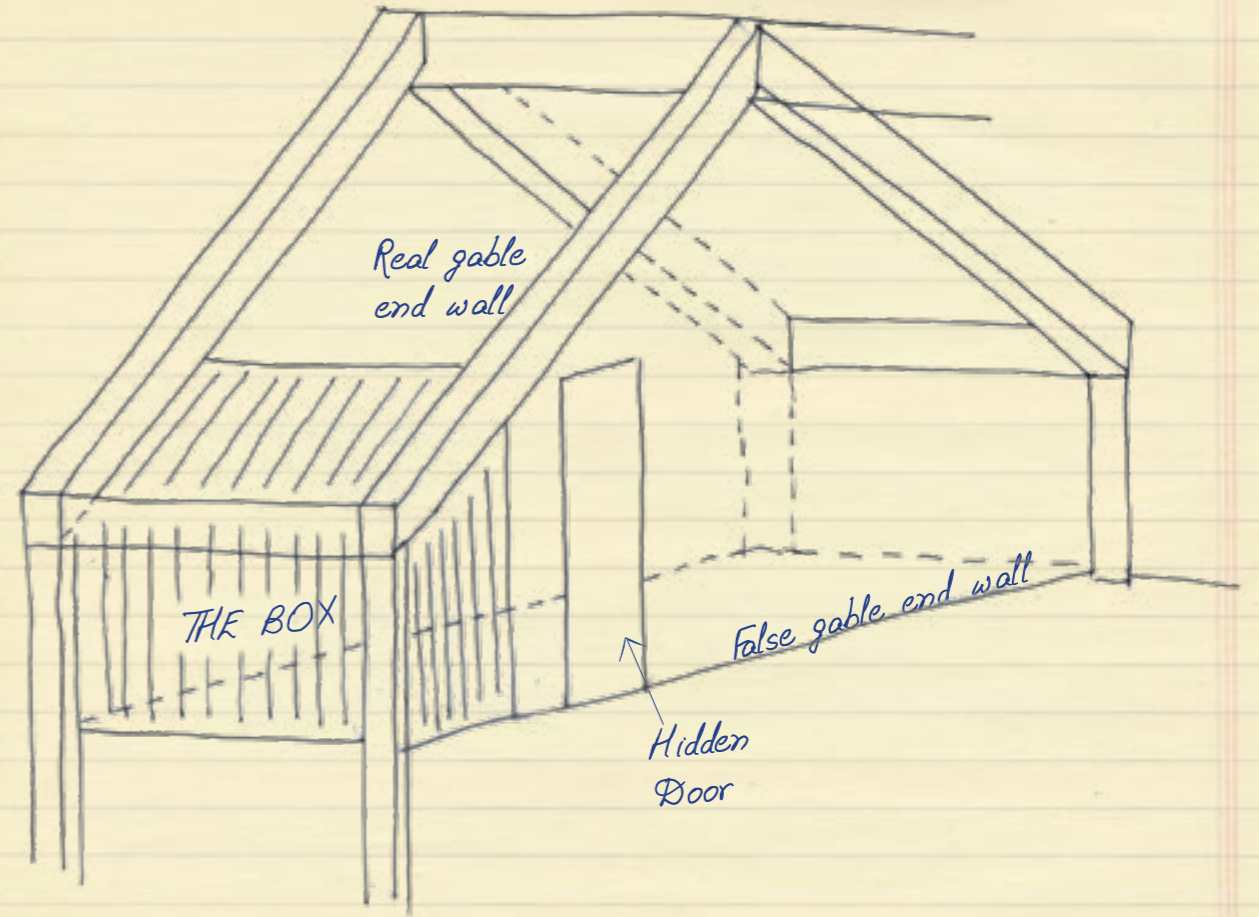 Real gable
end wall
THE BOX
False gable end wall
Hidden
Door